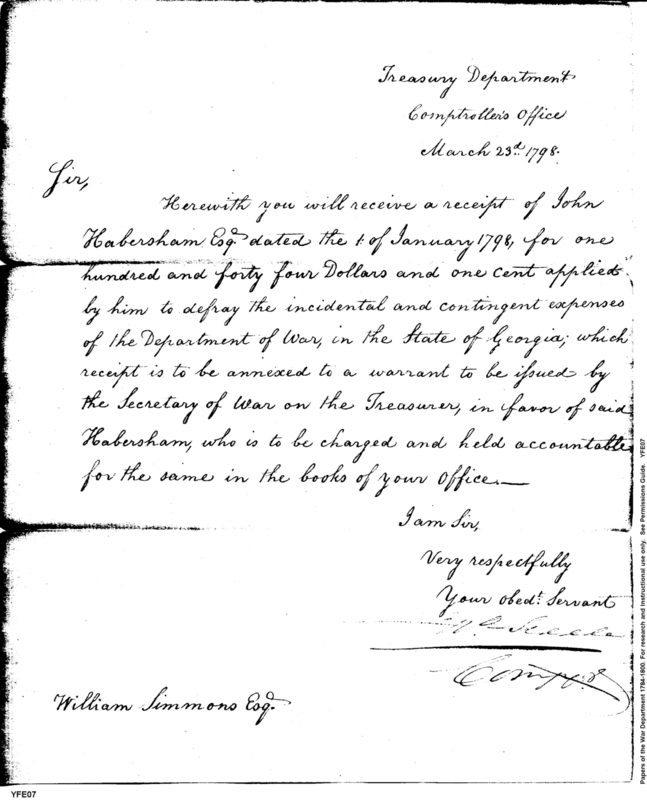 Treasury Department
Comptroller's Office
March 23d. 1798.
Sir,
Herewith you will receive a receipt of John
Habersham Esqr. dated the 1. of January 1798, for one
hundred and forty four Dollars and one cent applied
by him to defray the incidental and contingent expenses
of the Department of War, in the State of Georgia; which
receipt is to be annexed to a warrant to be issued by
the Secretary of War on the Treasurer, in favor of said
Habersham, who is to be charged and held accountable
for the same in the books of your Office.—
I am Sir,
Very respectfully
Your obedt. Servant
Jno Steele
Compr.
William Simmons Esqr.
Papers of the War Department 1784-1800. For research and instructional use only. See Permissions Guide. YFE07
YFE07